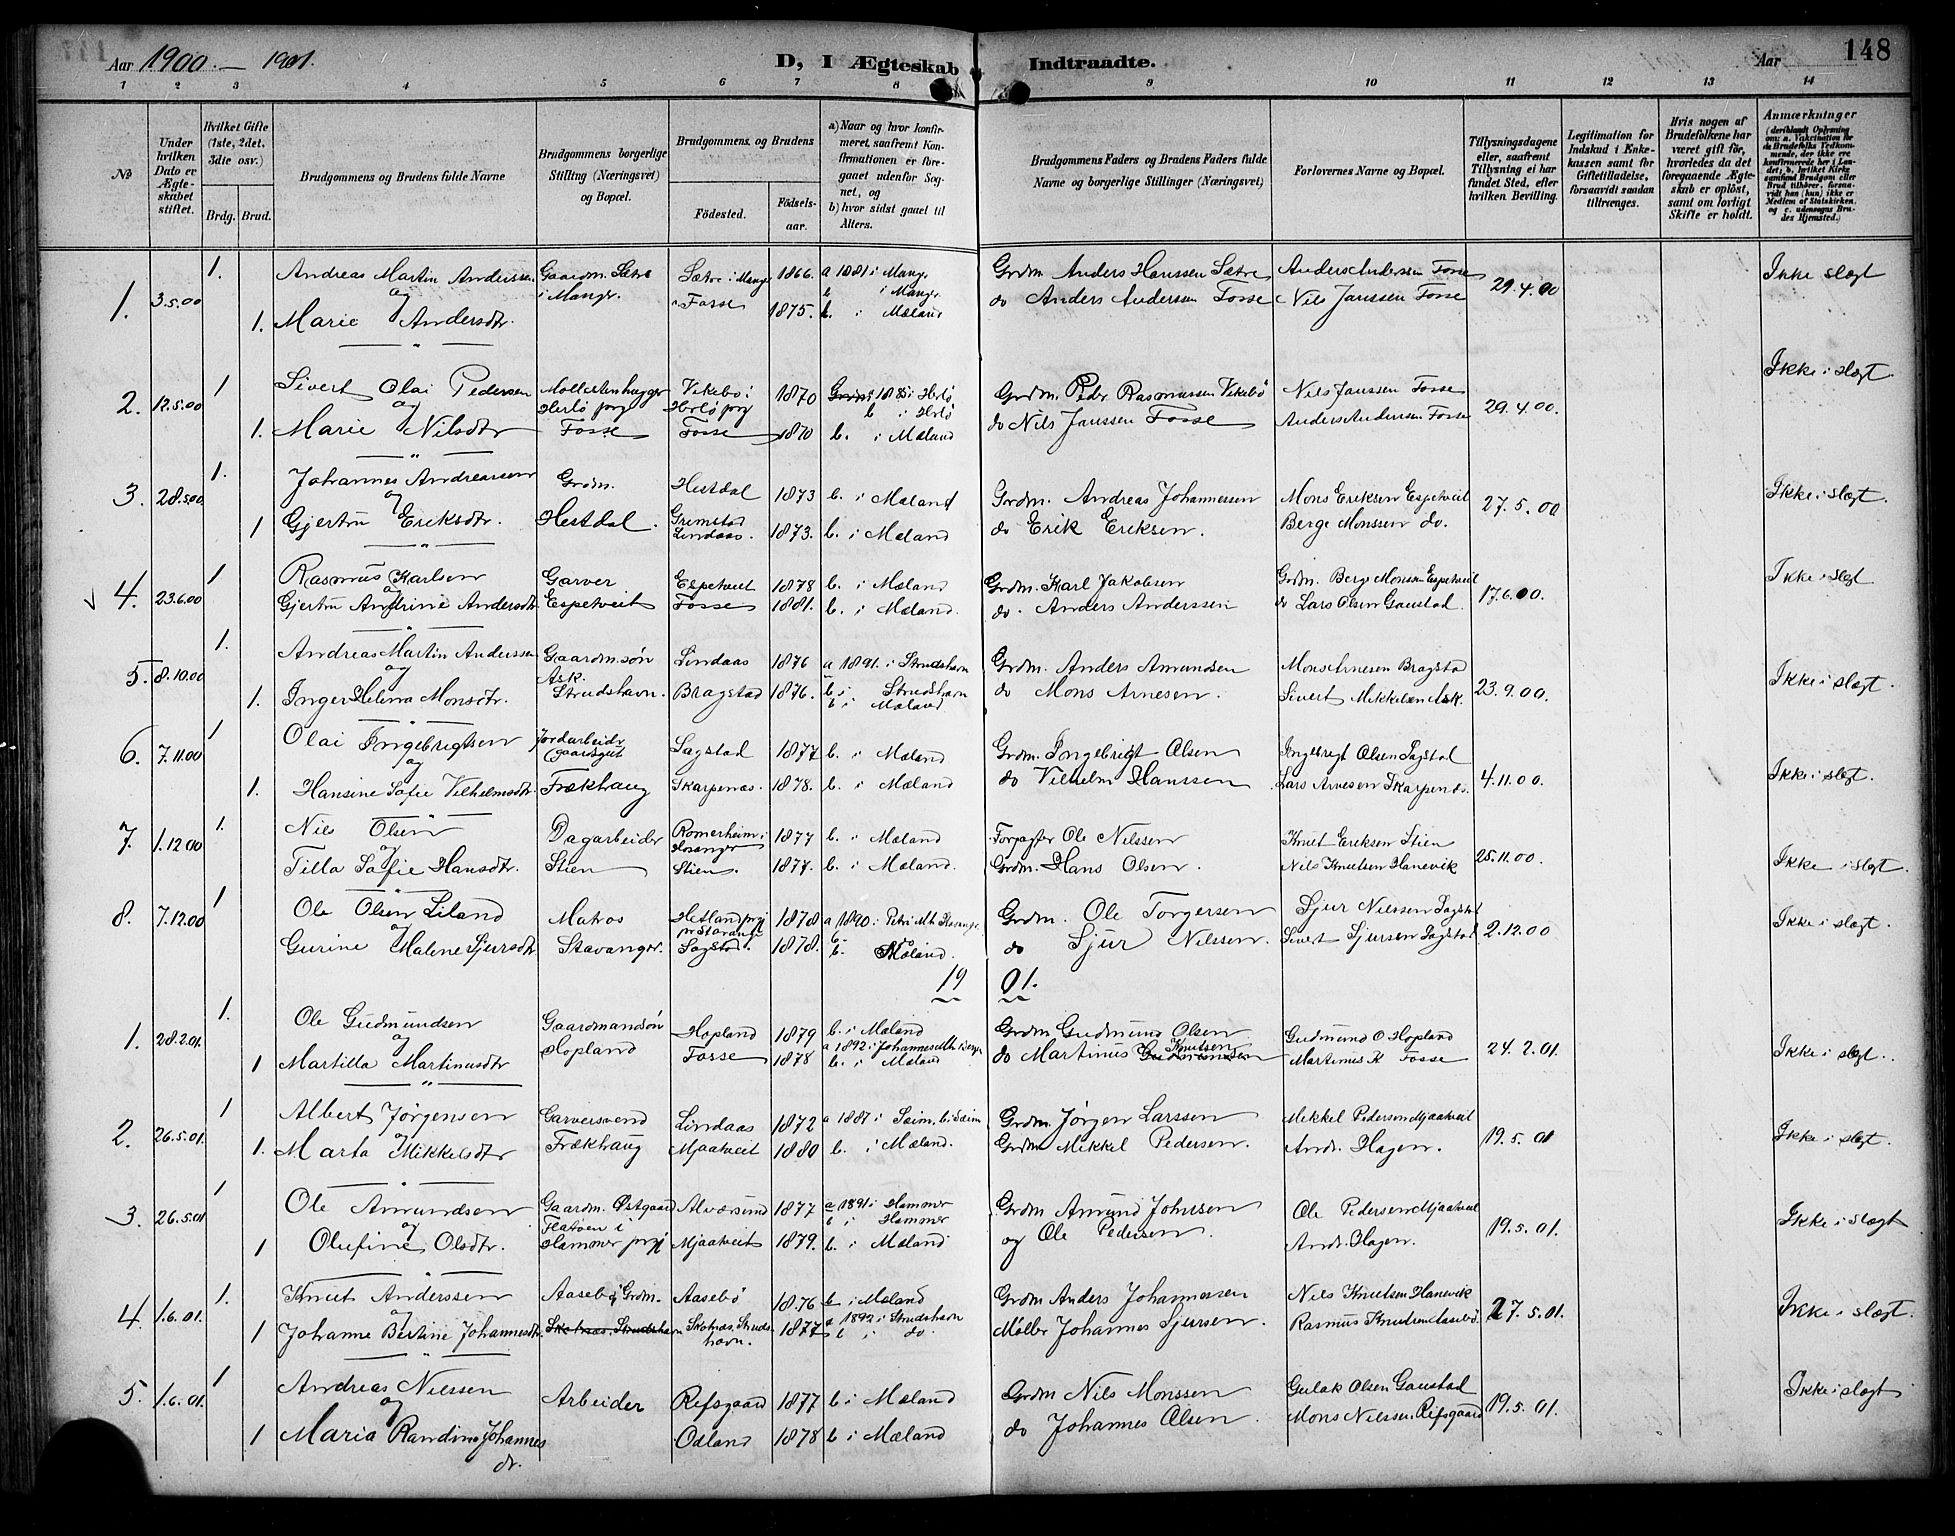 Aar 1900. — 1901.
D, I Ægteskab Indtraadte.
Aar
148
1 2 3 4 5 6 7 8 9 10 11 12 13 14
No
Under hvilken Dato er Ægteskabet stiftet.
Hvilket Gifte (1ste, 2det, 3die osv.)
Brdg. Brud.
Brudgommens og Brudens fulde Navne
Brudgommens borgerlige Stilling (Næringsvei) og Bopæl.
Brudgommens og Brudens
Födested.
Födselsaar.
a) Naar og hvor konfirmeret, saafremt Konfirmationen er foregaaet udenfor Sognet, og
b) hvor sidst gaaet til Alters.
Brudgommens Faders og Brudens Faders fulde Navne og borgerlige Stillinger (Næringsvei)
Forlovernes Navne og Bopæl.
Tillysningsdagene eller, saafremt Tillysning ei har fundet Sted, efter hvilken Bevilling.
Legitimation for Indskud i Enkekassen samt for Giftetilladelse, forsaavidt saadan tiltrænges.
Hvis nogen af Brudefolkene har været gift för, hvorledes da det foregaaende Ægteskab er oplöst, samt om lovligt Skifte er holdt.
Anmærkninger
1. 3.5.00 1. Andreas Martin Anderssen Gaardm. Sætre i Mange Sætre i Mange 1866. a 1881 i Mange b i Mange Grdm Anders Hanssen Sætre Anders Anderssen Fosse 29.4.00 Ikke slægt
og
1. Marie Andersdtr. Fosse 1875. b. i Mæland do Anders Anderssen Fosse Nils Janssen Fosse
2. 12.5.00 1 Sivert Olai Pedersen Herlø prgj Vikebø i Herlø prgj 1870 1885 i Herlø b i Herlø Grdm. Peder Rasmussen Vikebö Nils Janssen Fosse 29.4.00. Ikke i slægt.
og
1. Marie Nilsdtr Fosse Fosse 1870 b. i Mæland do Nils Janssen Fosse Anders Anderssen Fosse
3. 28.5.00 1. Johannes Andreassen Grdm. Hestdal 1873 b. i Mæland Grdm. Andreas Johannessen Mons Eriksen Espetveit 27.5.00 Ikke i slægt.
og
1 Gjertru Eriksdtr. Hestdal. Grimstad Lindaas. 1873. b. i Mæland do Erik Eriksen. Berge Monssen do.
4. 23.6.00 1 Rasmus Karlsen Garver Espetveit 1878 b. i Mæland Grdm. Karl Jakobsen Grdm. Berge Monssen Espetveit 17.6.00. Ikke i slægt
og
Gjertru Andrine Andersdtr Espetveit Fosse 1881. b. i Mæland. do. Anders Anderssen do Lars Olsen Gaustad.
5. 8.10.00 1. Andreas Martin Anderssen Gaardm.søn Ask. Lindaas 1876 a 1891. i Strudshavn Grdm. Anders Amundsen Mons Arnesen Bragstad 23.9.00. Ikke i slægt.
og
1. Inger Helena Monsdtr. Strudshavn. Bragstad 1876. b i Strudshavn b i Mæland do Mons Arnesen. Sivert Mikkelsen Ask.
6. 7.11.00 1 Olai Ingebrigtsen Jordarbeider Sagstad 1877 b. i Mæland Grdm. Ingebrigt Olsen Ingebrigt Olsen Sagstad 4.11.00. Ikke i slægt.
og
1. Hansine Sofie Vilhelmsdtr. Frækhaug Skarpenæs. 1878. b. i Mæland do Vilhelm Hanssen Lars Arnesen Skarpenæs.
7. 1.12.00 1. Nils Olsen Dagarbeider Romerheim i Hosanger 1877 b. i Mæland Forpagter Ole Nilssen Knut Eriksen Stien 25.11.00. Ikke i slægt.
og
Tilla Sofie Hansdtr. Stien Stien. 1877. b. i Mæland. Grdm. Hans Olsen. Nils Knutsen Hanevik
8. 7.12.00 1 Ole Olsen Liland Matros Hetland prgj pr Stavanger 1878 a 1890 i Petri Mh Stavanger Grdm. Ole Torgersen Sjur Nilssen Sagstad 2.12.00 Ikke i slægt.
og
Gurine Malene Sjursdtr Stavanger. Sagstad. 1878. b. Mæland. do Sjur Nilssen. Sivert Sjursen Sagstad
19 01.
1. 28.2.01. 1. Ole Gudmundsen Gaardmandsøn Hopland 1879 b. i Mæland Grdm Gudmund Olsen Gudmund O Hopland 24.2.01. Ikke i slægt.
og
1 Martilla Martinusdtr Hopland Fosse 1878 a 1892 i Johannes Mh Bergen b. i Mæland do Martinus Knutsen Martinus K Fosse
2. 26.5.01. 1 Albert Jørgensen Garversvend Lindaas 1872 a 1887 i Seim. b i Seim Grdm. Jørgen Larssen Mikkel Pedersen Mjaatveit 19.5.01 Ikke i slægt.
1. Marta Mikkelsdtr Frækhaug Mjaatveit 1880 b. i Mæland. Grdm Mikkel Pedersen. Andr. Hagen.
3. 26.5.01 1 Ole Amundsen Gaardm. Østgaard Flatøen i Alværsund 1877 a 1891 i Hammer b i Hammer Grdm Amund Johnsen Ole Pedersen Mjaatveit 19.5.01. Ikke i slægt
og
1 Olufine Olsdtr. Hammer prgj Mjaatveit 1879. b. i Mæland og Ole Pedersen. Andr. Hagen.
4. 1.6.01. 1. Knut Anderssen Aasebø Grdm. Aasebø 1876 b i Mæland Grdm Anders Johannessen Nils Knutsen Hanevik 27.5.01. Ikke i slægt.
og
1 Johanne Bertine Johannesdtr. Skotnæs. Strudshavn Skotnæs. Strudshavn. 1877 a 1892 i Strudshavn b i do Møller Johannes Sjursen. Rasmus Knudsen Aasebø.
5. 1.6.01. 1 Andreas Nilssen Arbeider Refsgaard 1877 b i Mæland Grdm Nils Monssen Gulak Olsen Gaustad 19.5.01. Ikke i slægt
og
1 Maria Randine Johannesdr. Odland 1878 b i Mæland do Johannes Olsen. Mons Nilssen Refsgaard